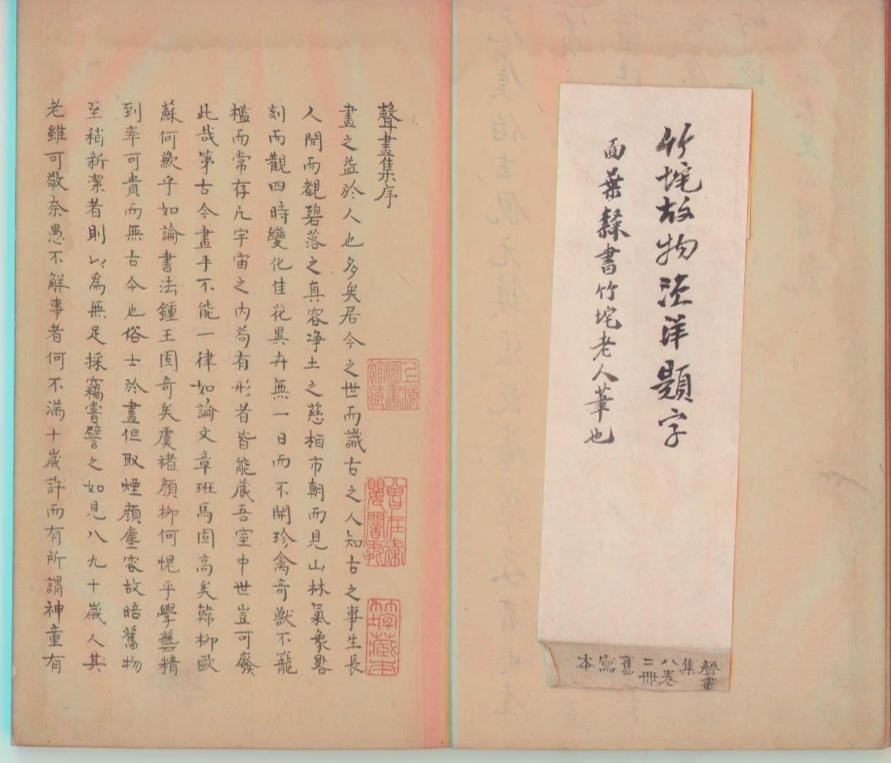 竹垞故物漁洋題字
面葉隸書竹垞老人筆也
聲畫
集
八卷
二冊
舊
寫
本
聲畫集序
畫之益於人也多矣居今之世而識古之人知古之事生長
人間而觀碧落之真容凈土之慈相市朝而見山林氣象
刻而觀四時變化佳花異卉無一日而不開珍禽奇獸不籠
檻而常存凡宇宙之內苟有形者皆能藏吾室中世豈可廢
此哉第古今畫手不能一律如論文章班馬固高矣韓柳歐
蘇何歉乎如論書法鍾王固奇矣虞褚顔柳何愧乎學藝精
到率可貴而無古今也俗士於畫但取煙顏塵容故暗舊物
至稍新潔者則以為無足採竊嘗譬之如見八九十歲人其
老雖可敬奈愚不解事者何不滿十歲許而有所謂神童有
上海
圖書
館藏
曾在秦
嬰闇處